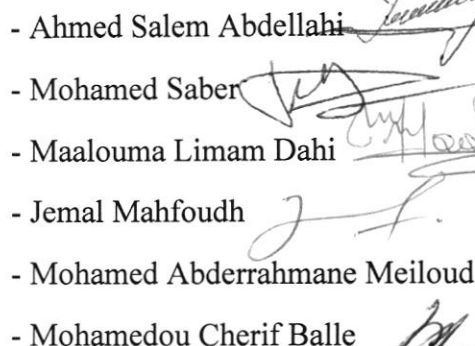 - Ahmed Salem Abdellahi
- Mohamed Saber
- Maalouma Limam Dahi
- Jemal Mahfoudh
- Mohamed Abderrahmane Meiloud
- Mohamedou Cherif Balle